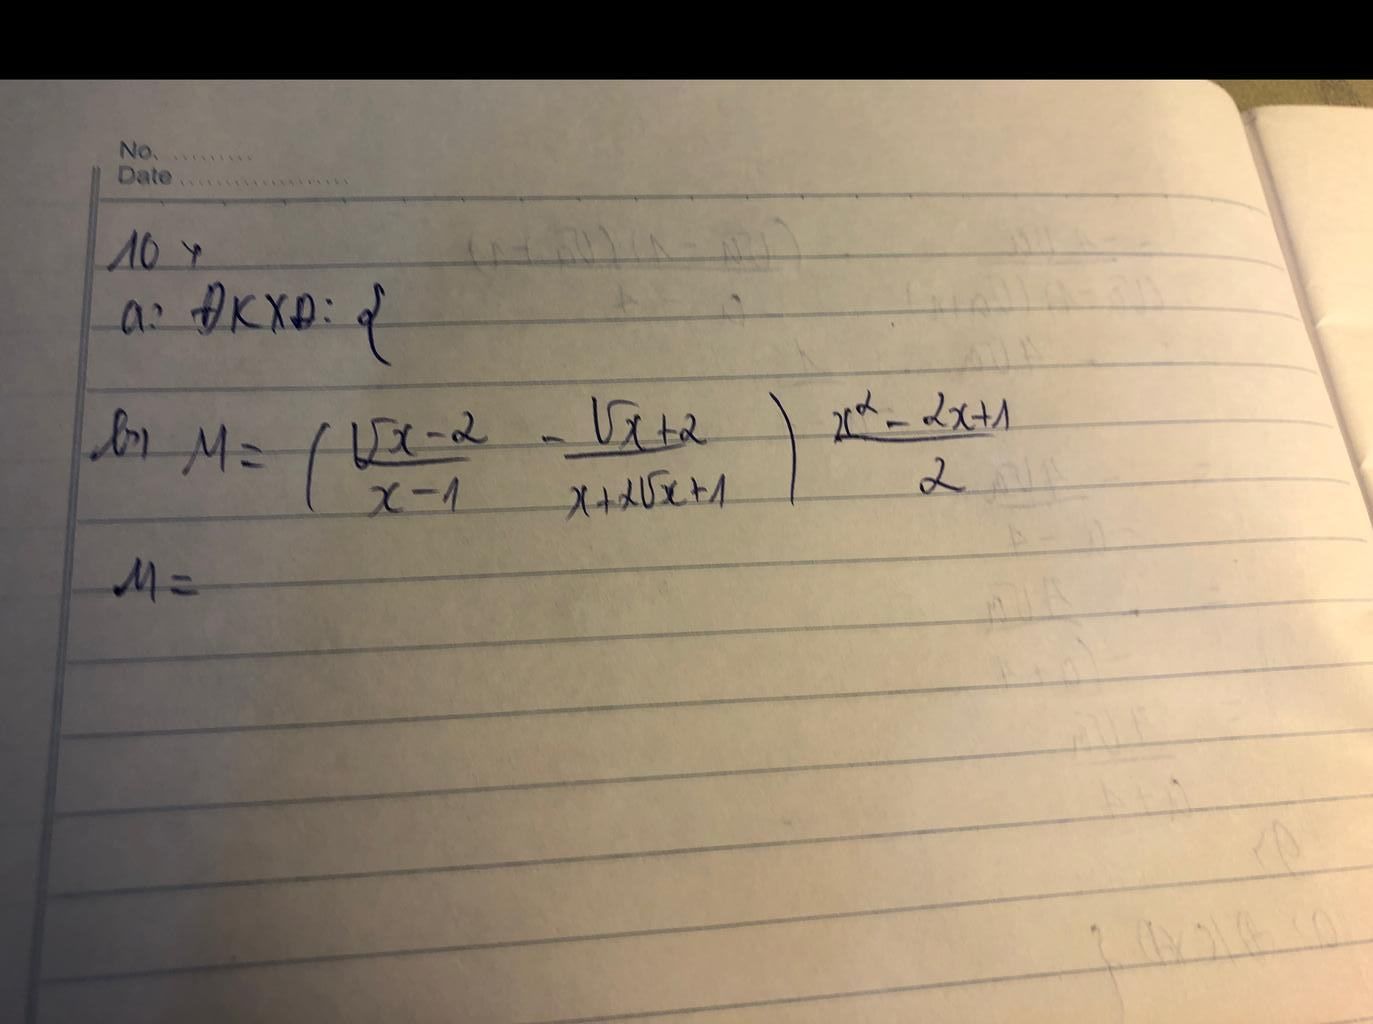 No. ..........
Date ....................
10,
a: ĐKXĐ: {
b, M = ( (√x - 2)/(x - 1) - (√x + 2)/(x + 2√x + 1) ) (x² - 2x + 1)/2
M =